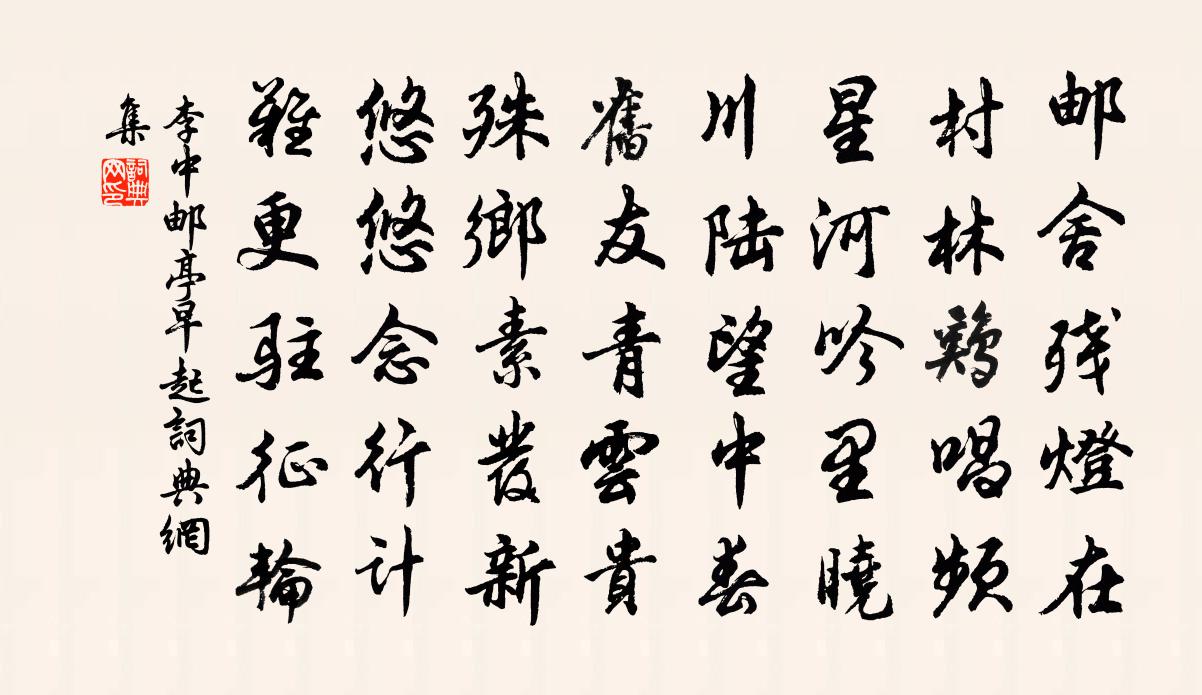 邮舍残燈在
村林鷄唱頻
星河吟里曉
川陆望中春
舊友青雲貴
殊鄉素髮新
悠悠念行计
難更駐征輪
李中邮亭早起詞典網
集
詞典網印